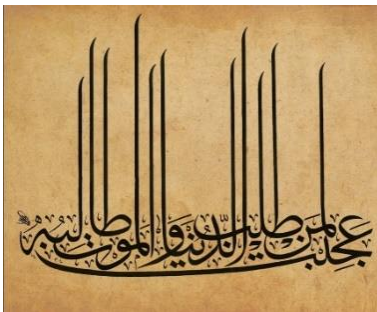 عَجِبْتُ لِمَنْ يَطْلُبُ الدُّنْيَا وَالْمَوْتُ طَالِبُهُ